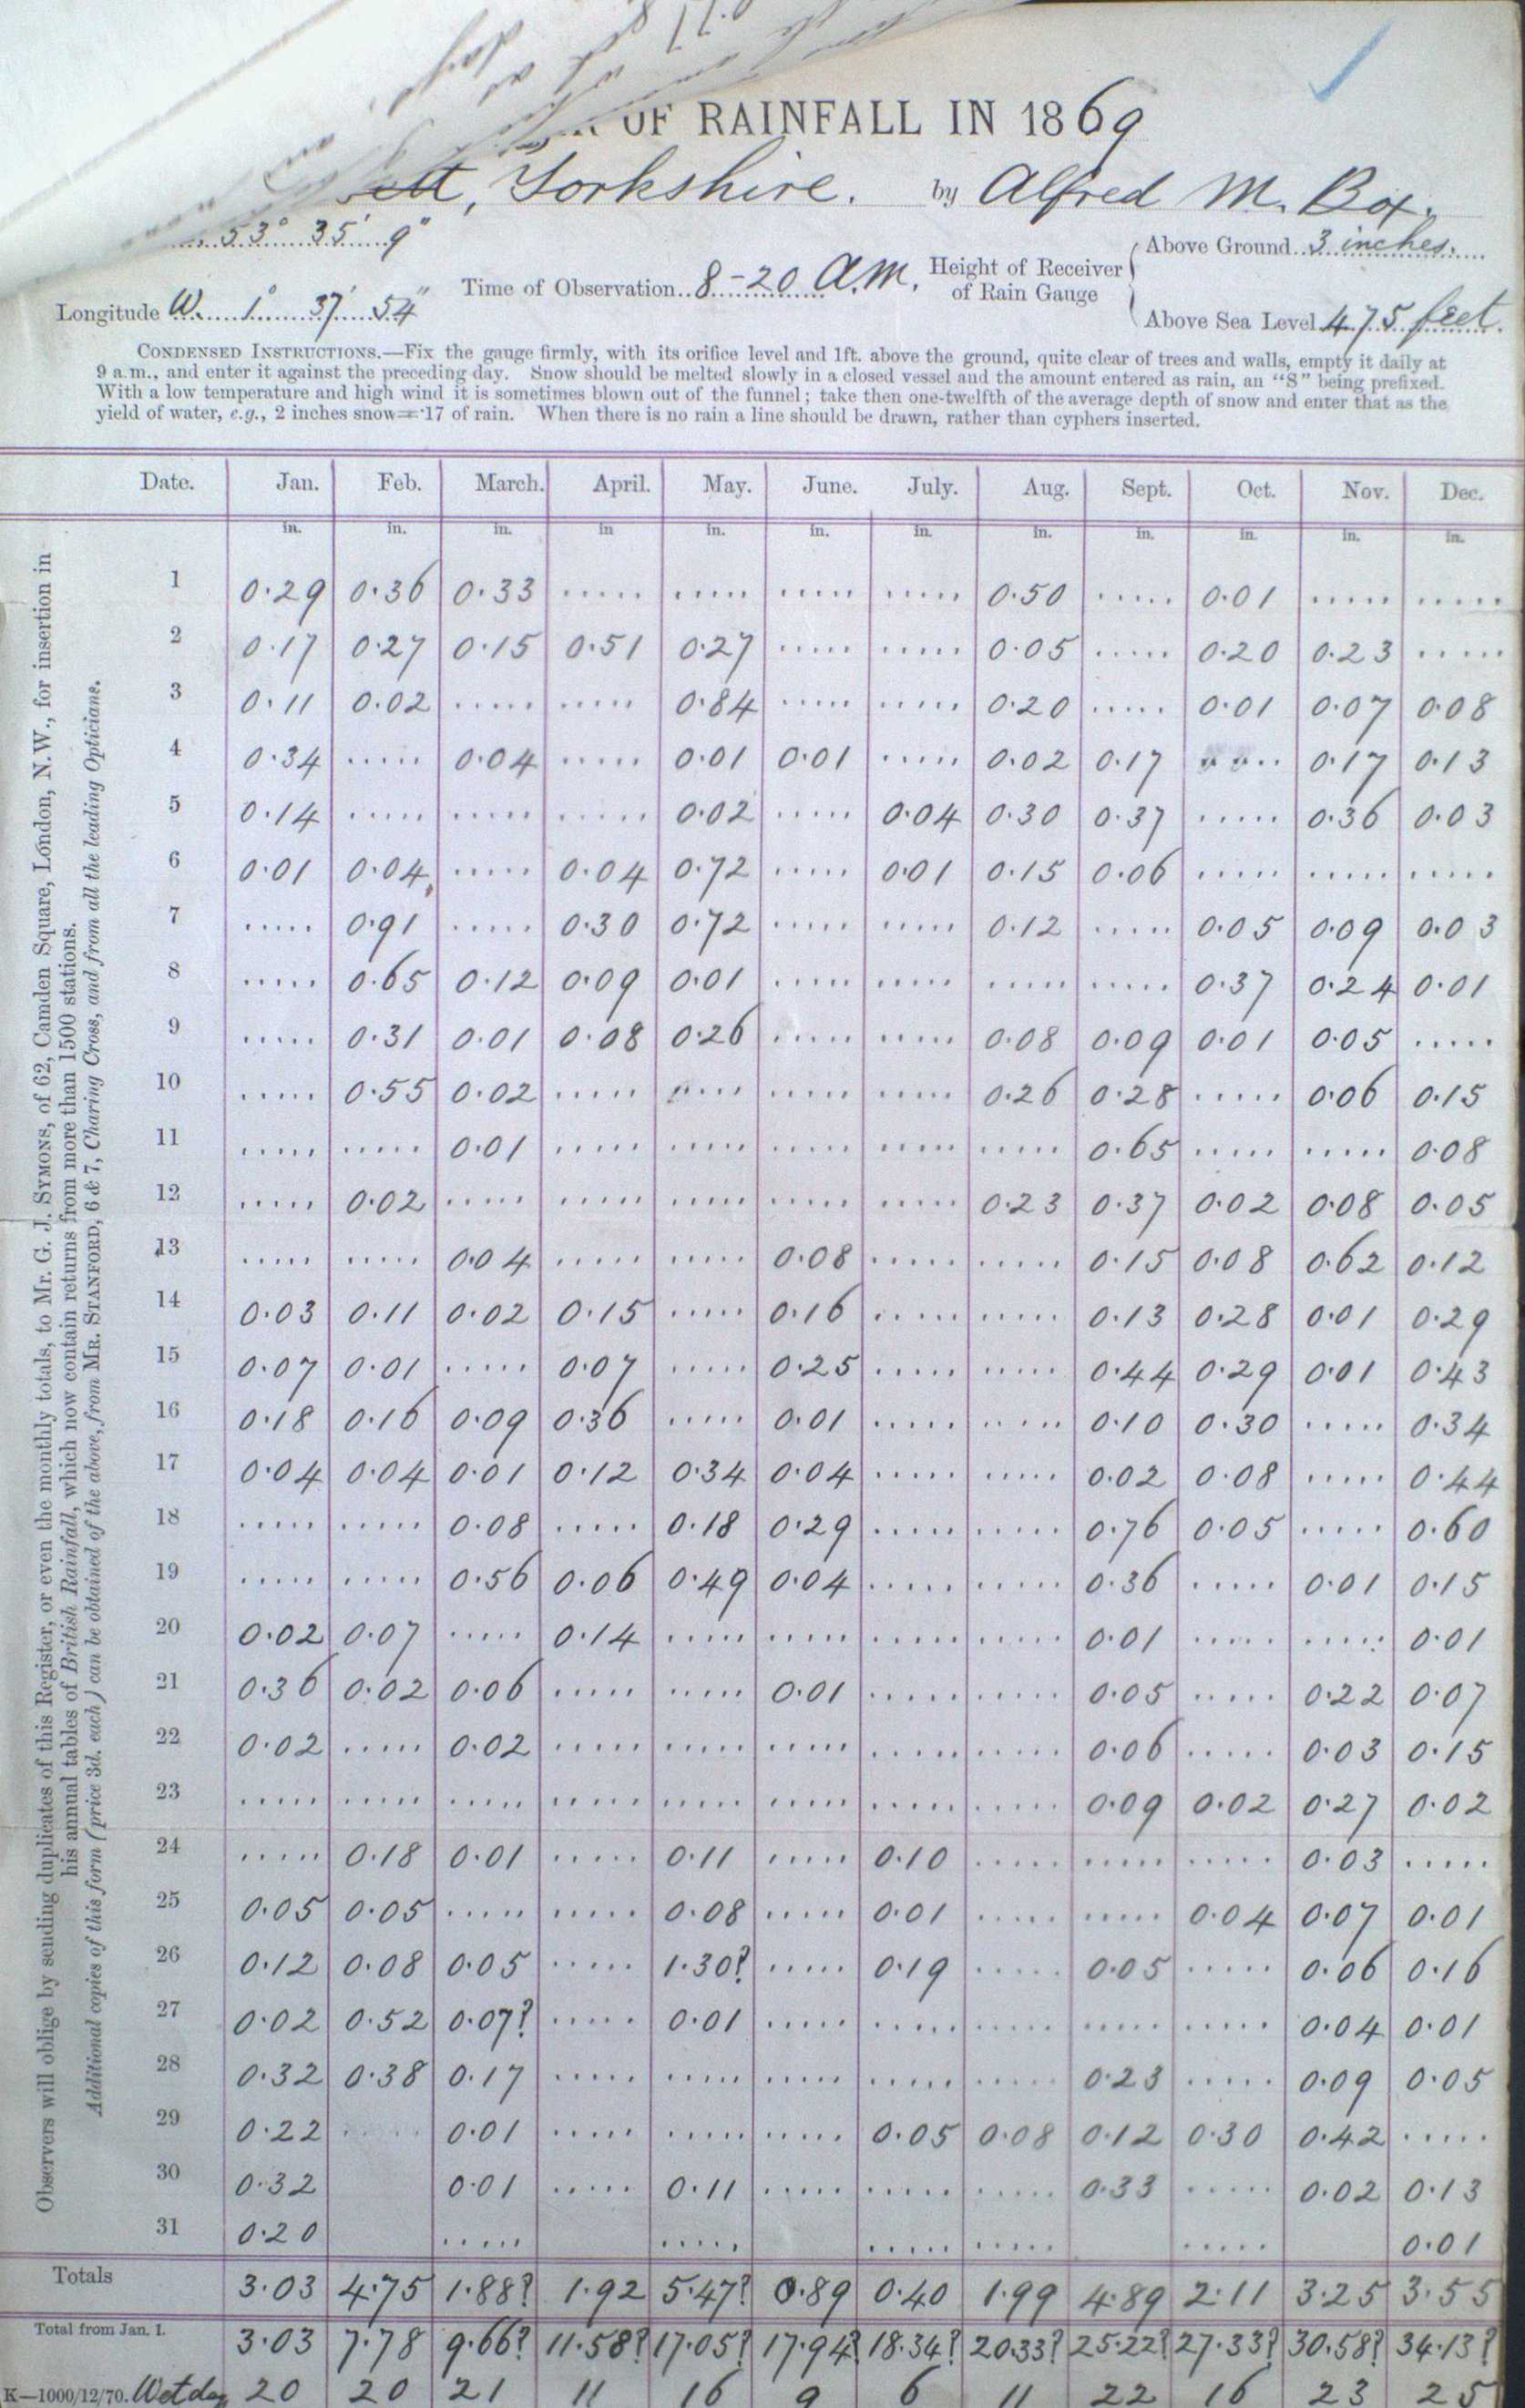 OF RAINFALL IN 1869
Yorkshire. by Alfred M. Box.
53° 35' 9"
Longitude W. 1° 37' 54"
Time of Observation 8-20 a.m.
Height of Receiver of Rain Gauge
Above Ground 3 inches.
Above Sea Level 475 feet.
CONDENSED INSTRUCTIONS.—Fix the gauge firmly, with its orifice level and 1ft. above the ground, quite clear of trees and walls, empty it daily at
9 a.m., and enter it against the preceding day. Snow should be melted slowly in a closed vessel and the amount entered as rain, an "S" being prefixed.
With a low temperature and high wind it is sometimes blown out of the funnel; take then one-twelfth of the average depth of snow and enter that as the
yield of water, e.g., 2 inches snow=·17 of rain. When there is no rain a line should be drawn, rather than cyphers inserted.
Observers will oblige by sending duplicates of this Register, or even the monthly totals, to Mr. G. J. SYMONS, of 62, Camden Square, London, N.W., for insertion in
his annual tables of British Rainfall, which now contain returns from more than 1500 stations.
Additional copies of this form (price 3d. each) can be obtained of the above, from MR. STANFORD, 6 & 7, Charing Cross, and from all the leading Opticians.
Date. Jan. Feb. March. April. May. June. July. Aug. Sept. Oct. Nov. Dec.
in. in. in. in in. in. in. in. in. in. in. in.
1 0·29 0·36 0·33 ..... ..... ..... ..... 0·50 ..... 0·01 ..... .....
2 0·17 0·27 0·15 0·51 0·27 ..... ..... 0·05 ..... 0·20 0·23 .....
3 0·11 0·02 ..... ..... 0·84 ..... ..... 0·20 ..... 0·01 0·07 0·08
4 0·34 ..... 0·04 ..... 0·01 0·01 ..... 0·02 0·17 ..... 0·17 0·13
5 0·14 ..... ..... ..... 0·02 ..... 0·04 0·30 0·37 ..... 0·36 0·03
6 0·01 0·04 ..... 0·04 0·72 ..... 0·01 0·15 0·06 ..... ..... .....
7 ..... 0·91 ..... 0·30 0·72 ..... ..... 0·12 ..... 0·05 0·09 0·03
8 ..... 0·65 0·12 0·09 0·01 ..... ..... ..... ..... 0·37 0·24 0·01
9 ..... 0·31 0·01 0·08 0·26 ..... ..... 0·08 0·09 0·01 0·05 .....
10 ..... 0·55 0·02 ..... ..... ..... ..... 0·26 0·28 ..... 0·06 0·15
11 ..... ..... 0·01 ..... ..... ..... ..... ..... 0·65 ..... ..... 0·08
12 ..... 0·02 ..... ..... ..... ..... ..... 0·23 0·37 0·02 0·08 0·05
13 ..... ..... 0·04 ..... ..... 0·08 ..... ..... 0·15 0·08 0·62 0·12
14 0·03 0·11 0·02 0·15 ..... 0·16 ..... ..... 0·13 0·28 0·01 0·29
15 0·07 0·01 ..... 0·07 ..... 0·25 ..... ..... 0·44 0·29 0·01 0·43
16 0·18 0·16 0·09 0·36 ..... 0·01 ..... ..... 0·10 0·30 ..... 0·34
17 0·04 0·04 0·01 0·12 0·34 0·04 ..... ..... 0·02 0·08 ..... 0·44
18 ..... ..... 0·08 ..... 0·18 0·29 ..... ..... 0·76 0·05 ..... 0·60
19 ..... ..... 0·56 0·06 0·49 0·04 ..... ..... 0·36 ..... 0·01 0·15
20 0·02 0·07 ..... 0·14 ..... ..... ..... ..... 0·01 ..... ..... 0·01
21 0·36 0·02 0·06 ..... ..... 0·01 ..... ..... 0·05 ..... 0·22 0·07
22 0·02 ..... 0·02 ..... ..... ..... ..... ..... 0·06 ..... 0·03 0·15
23 ..... ..... ..... ..... ..... ..... ..... ..... 0·09 0·02 0·27 0·02
24 ..... 0·18 0·01 ..... 0·11 ..... 0·10 ..... ..... ..... 0·03 .....
25 0·05 0·05 ..... ..... 0·08 ..... 0·01 ..... ..... 0·04 0·07 0·01
26 0·12 0·08 0·05 ..... 1·30? ..... 0·19 ..... 0·05 ..... 0·06 0·16
27 0·02 0·52 0·07? ..... 0·01 ..... ..... ..... ..... ..... 0·04 0·01
28 0·32 0·38 0·17 ..... ..... ..... ..... ..... 0·23 ..... 0·09 0·05
29 0·22 ..... 0·01 ..... ..... ..... 0·05 0·08 0·12 0·30 0·42 .....
30 0·32 0·01 ..... 0·11 ..... ..... ..... 0·33 ..... 0·02 0·13
31 0·20 ..... ..... ..... ..... ..... 0·01
Totals 3·03 4·75 1·88? 1·92 5·47? 0·89 0·40 1·99 4·89 2·11 3·25 3·55
Total from Jan. 1. 3·03 7·78 9·66? 11·58? 17·05? 17·94? 18·34? 20·33? 25·22? 27·33? 30·58? 34·13?
K—1000/12/70. Wet days 20 20 21 11 16 9 6 11 22 16 23 25